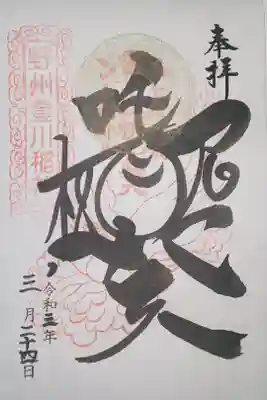 奉拝
吒枳尼天
令和三年
三月二十四日
州豊川稲